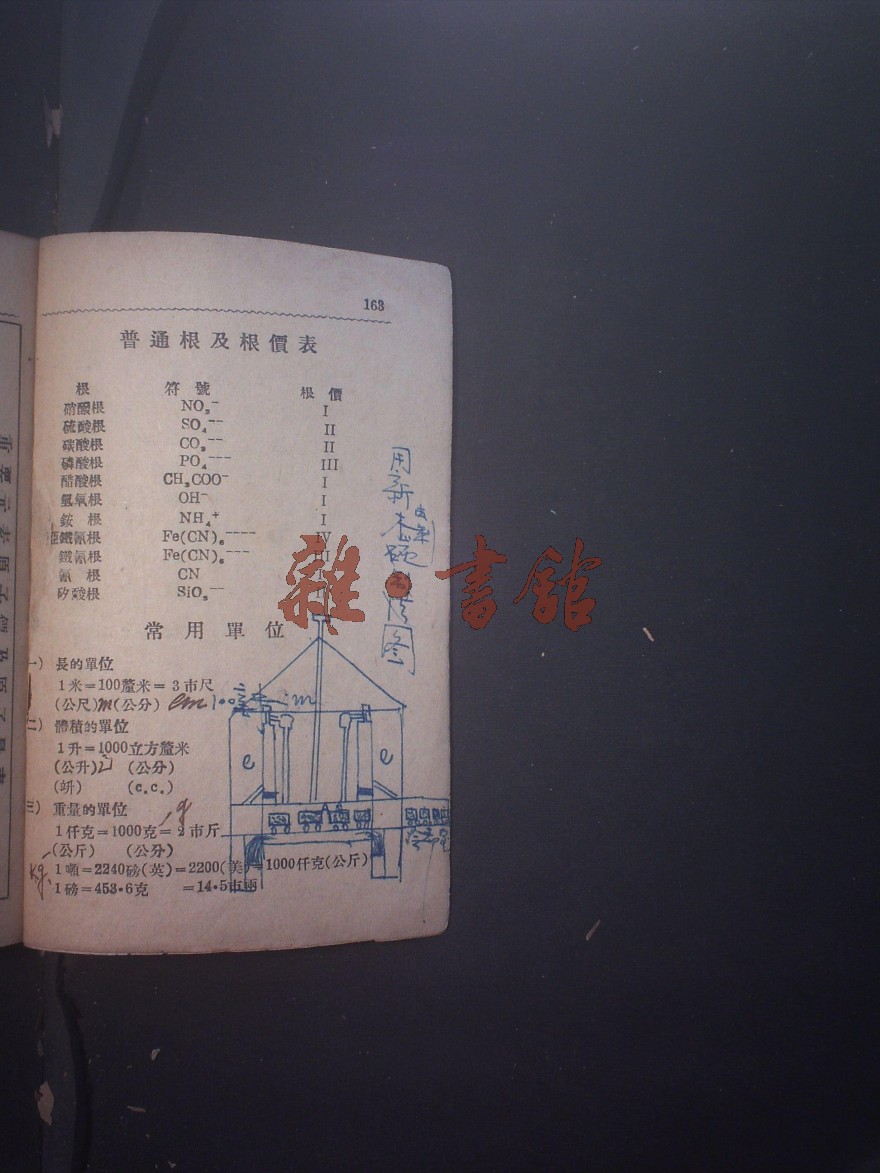 163
普通根及根價表
根 符號 根價
硝酸根 NO₃⁻ I
硫酸根 SO₄⁻⁻ II
碳酸根 CO₃⁻⁻ II
磷酸根 PO₄⁻⁻⁻ III
醋酸根 CH₃COO⁻ I
氫氧根 OH⁻ I
銨根 NH₄⁺ I
亞鐵氰根 Fe(CN)₆⁻⁻⁻⁻ IV
鐵氰根 Fe(CN)₆⁻⁻⁻ III
氰根 CN I
矽酸根 SiO₃⁻⁻
常用單位
一) 長的單位
1米=100釐米=3市尺
(公尺)m(公分) cm
二) 體積的單位
1升=1000立方釐米
(公升) (公分)
(竔) (c.c.)
三) 重量的單位
g
1仟克=1000克=2市斤
(公斤) (公分)
kg
1噸=2240磅(英)=2200(美)=1000仟克(公斤)
1磅=453·6克 =14·5市兩
用新
圖
e e
雜·書館